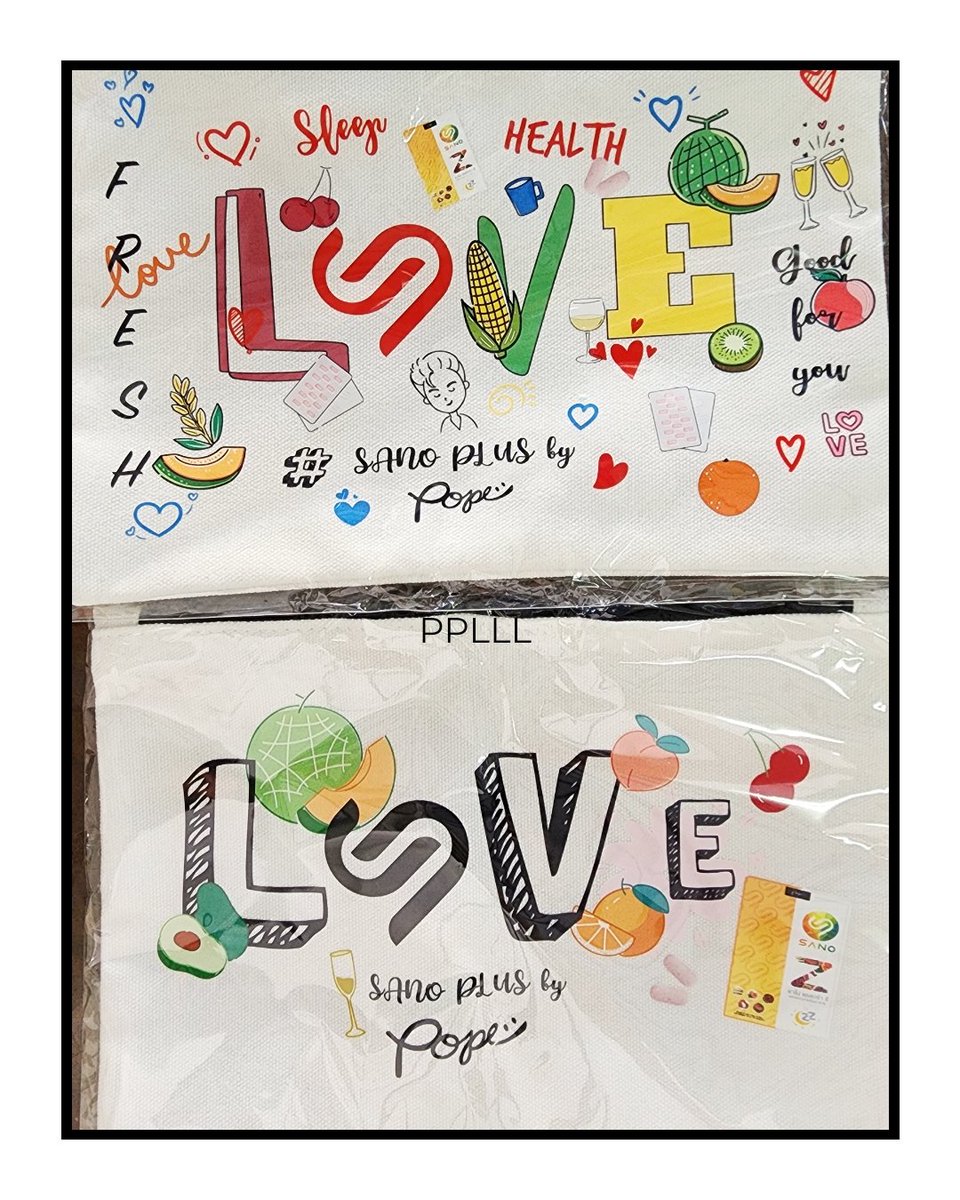 Sleep
HEALTH
SANO
Z
FRESH
love
LOVE
Good
for
you
LOVE
# SANO PLUS by
Pope
PPLLL
LOVE
SANO
Z
SANO PLUS by
Pope